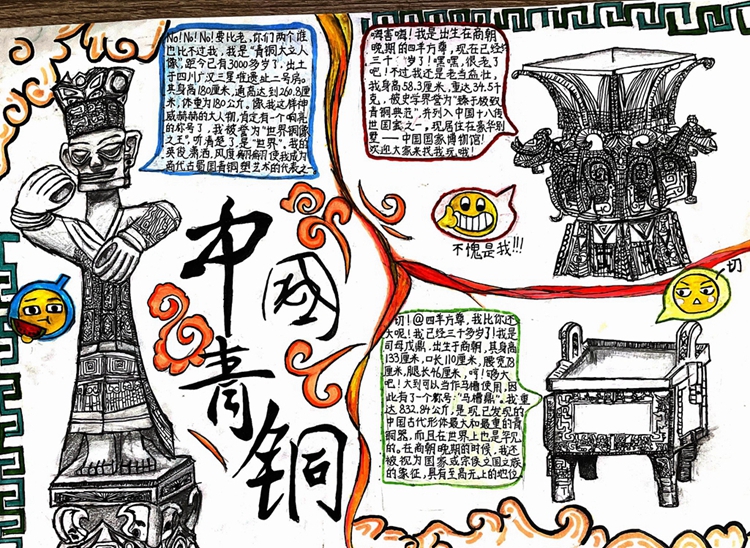 No!No!No!要比老，你们两个谁
也比不过我，我是“青铜大立人
像”，距今已有3000多岁了，出土
于四川广汉三星堆遗址二号坑。
其身高180厘米，通高达到260.8厘
米，体重为180公斤。像我这样伸
威赫赫的大人物，肯定有一个响亮
的称号了，我被誉为“世界铜像
之王”，听清楚了，是“世界”，我的
英俊潇洒，风度翩翩使我成为
商代古蜀国青铜塑艺术的代表之
嗨害嗨！我是出生在商朝
晚期的四羊方尊，现在已经
三千岁了！嘿嘿，很老了
吧！不过，我还是老当益壮，
我身高58.3厘米，重达34.5千
克，被史学界誉为“臻于极致
青铜典范”，并列入中国十八传
世国宝之一，现居住在豪华别
墅——中国国家博物馆！
欢迎大家来找我玩哦！
不愧是我!!!
切
中國
青铜
切！@四羊方尊，我比你还
大呢！我已经三千多岁了！我是
司母戊鼎，出生于商朝，其身高
133厘米，口长110厘米，腰宽78
厘米，腿长46厘米，哼！够大
吧！大到可以当作马槽使用，因
此有了一个称号：“马槽鼎”。我重
达832.84公斤，是现已发现的
中国古代形体最大和最重的青
铜器，而且在世界上也是罕见
的。在商朝晚期的时候，我还
被视为国家或宗侯立国立族
的象征，具有至高无上的地位